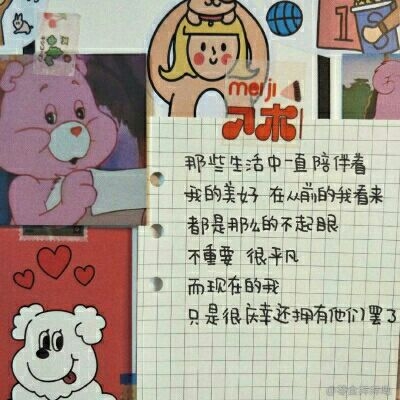 meiji
那些生活中一直陪伴着
我的美好 在从前的我看来
都是那么的不起眼
不重要 很平凡
而现在的我
只是很庆幸还拥有他们罢了